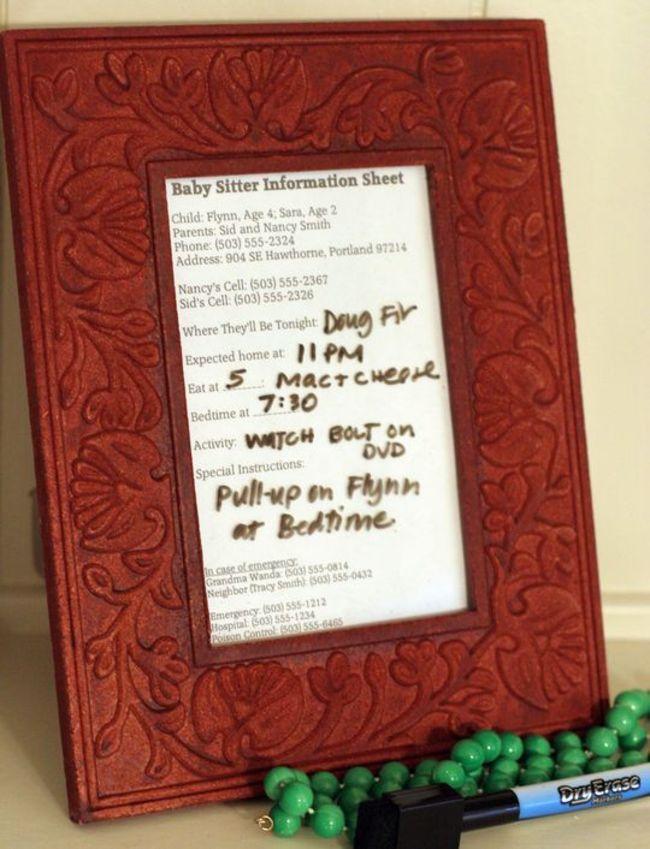 Baby Sitter Information Sheet
Child: Flynn, Age 4; Sara, Age 2
Parents: Sid and Nancy Smith
Phone: (503) 555-2324
Address: 904 SE Hawthorne, Portland 97214
Nancy's Cell: (503) 555-2367
Sid's Cell: (503) 555-2326
Where They'll Be Tonight: Doug Fir
Expected home at: 11 PM
Eat at 5 : Mac + Cheese
Bedtime at 7:30
Activity: WATCH BOLT on
DVD
Special Instructions:
Pull-up on Flynn
at Bedtime
In case of emergency:
Grandma Wanda: (503) 555-0814
Neighbor (Tracy Smith): (503) 555-0432
Emergency: (503) 555-1212
Hospital: (503) 555-1234
Poison Control: (503) 555-6465
Dry Erase
Markers